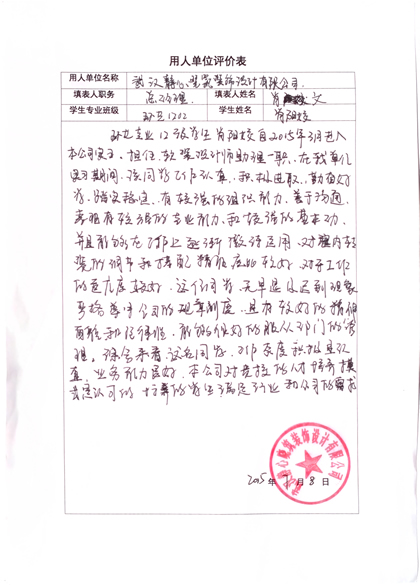 用人单位评价表
用人单位名称 武汉静心景筑装饰设计有限公司
填表人职务 总经理 填表人姓名 肖 文
学生专业班级 环艺1202 学生姓名 肖阳校
环艺专业12级学生肖阳校自2015年3月进入
本公司实习,担任软装设计师助理一职,在我单位
实习期间,该同学工作认真,积极进取,勤奋好
学,踏实稳定,有较强的组织能力,善于沟通,
具有较强的专业能力和较强的基本功,
并且能够在工作上逐渐激活运用,对室内软
装的细节和搭配精准度比较好,对于工作
的适应度较好,这个同学,无早退及迟到现象
严格遵守公司的规章制度,具有较好的精神
面貌和纪律性,能够很好的服从部门的管
理,综合来看这名同学,工作态度积极且认
真,业务能力良好,本公司对贵校的人才培养模
式表示认可,培养的学生满足行业和公司的需求
2015年7月8日